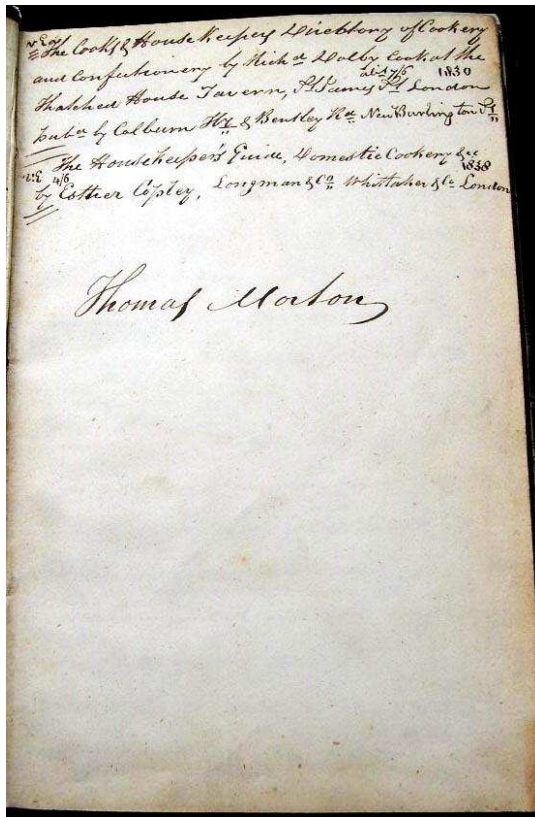 The Cook's & House Keepers Directory of Cookery
and Confectionery by Richd Dolby Cook at the
1830
Thatched House Tavern, St James St London
pubd by Colburn Hy & Bentley Rd New Burlington St
The Housekeeper's Guide, Domestic Cookery &c
4/6 1838
by Esther Copley, Longman & Co Whittaker & Co London
Thomas Morton